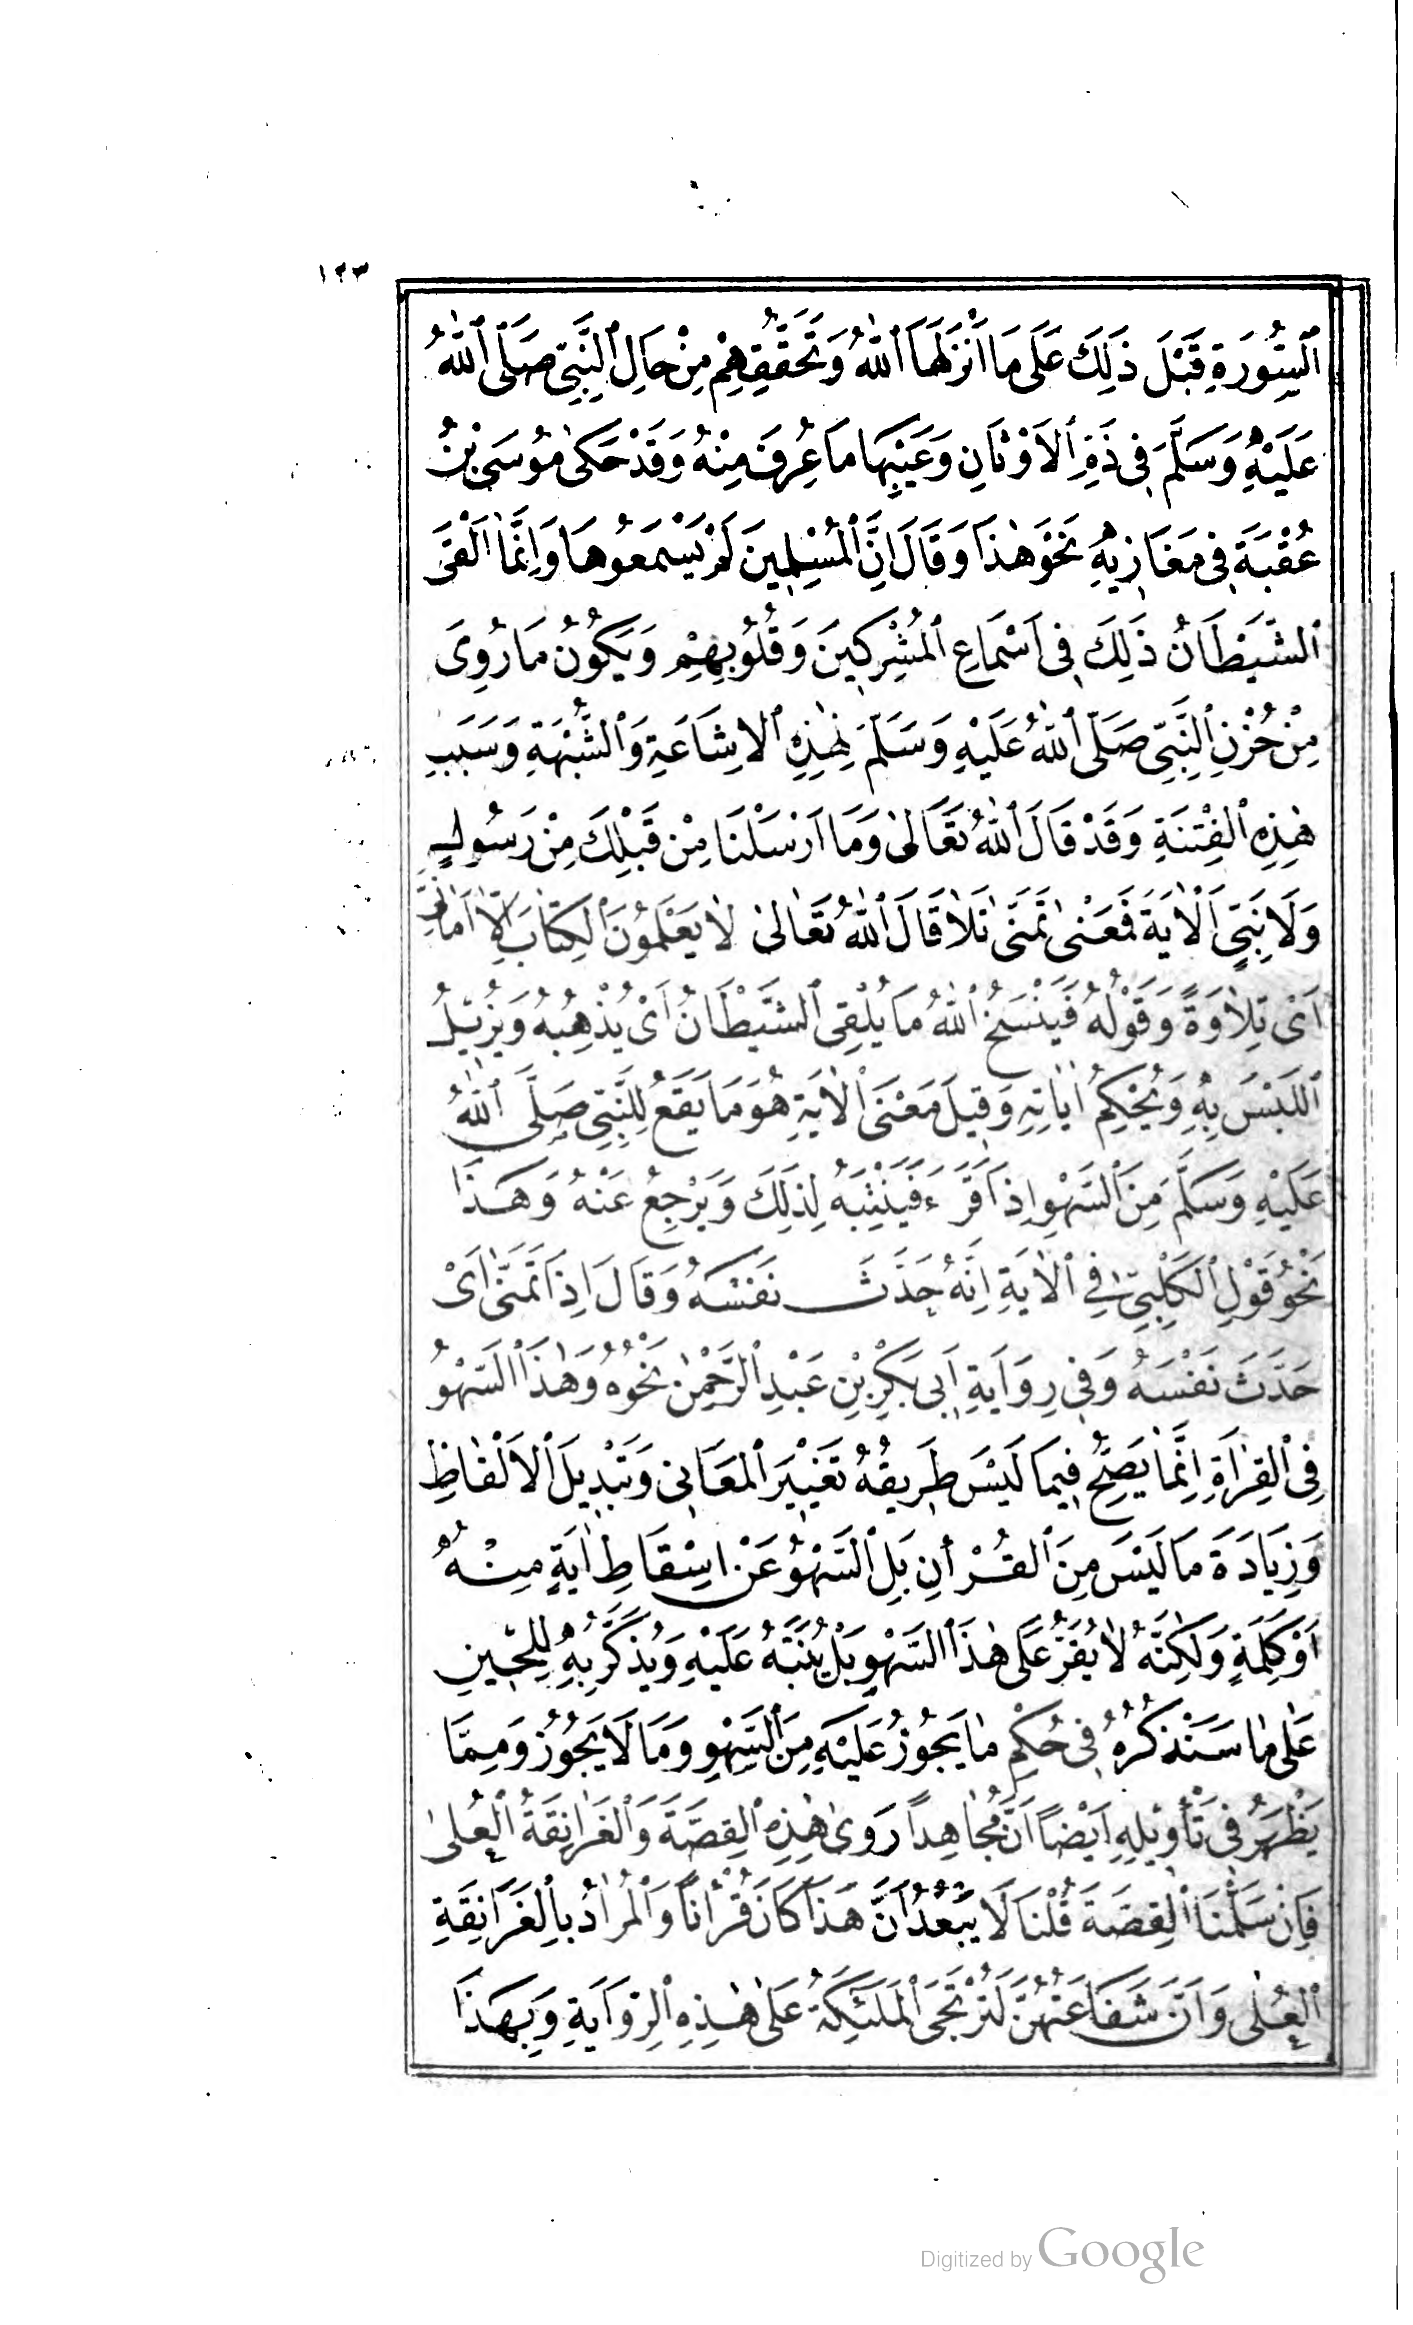 ١٢٣
ٱلسُّورَةِ قَبْلَ ذَلِكَ عَلَى مَا اَنْزَلَهَا ٱللهُ وَتَحَقُّقِهِمْ مِنْ حَالِ ٱلنَّبِىِّ صَلَّى ٱللهُ
عَلَيْهِ وَسَلَّمَ فِى ذَمِّ ٱلاَوْثَانِ وَعَيْبِهَا مَا عُرِفَ مِنْهُ وَقَدْ حَكٰى مُوسَى بْنُ
عُقْبَةَ فِى مَغَازِيهِ نَحْوَ هٰذَا وَقَالَ اِنَّ ٱلْمُسْلِمِينَ لَمْ يَسْمَعُوهَا وَاِنَّمَا اَلْقَى
ٱلشَّيْطَانُ ذَلِكَ فِى اَسْمَاعِ ٱلْمُشْرِكِينَ وَقُلُوبِهِمْ وَيَكُونُ مَا رُوِىَ
مِنْ حُزْنِ ٱلنَّبِىِّ صَلَّى ٱللهُ عَلَيْهِ وَسَلَّمَ لِهٰذِهِ ٱلاِشَاعَةِ وَٱلشُّبْهَةِ وَسَبَبِ
هٰذِهِ ٱلْفِتْنَةِ وَقَدْ قَالَ ٱللهُ تَعَالٰى وَمَا اَرْسَلْنَا مِنْ قَبْلِكَ مِنْ رَسُولٍ
وَلَا نَبِىٍّ ٱلْاٰيَةَ فَمَعْنٰى تَمَنَّى تَلَا قَالَ ٱللهُ تَعَالٰى لَا يَعْلَمُونَ ٱلْكِتَابَ اِلَّا اَمَانِىَّ
اَىْ تِلَاوَةً وَقَوْلُهُ فَيَنْسَخُ ٱللهُ مَا يُلْقِى ٱلشَّيْطَانُ اَىْ يُذْهِبُهُ وَيُزِيلُ
ٱللَّبْسَ بِهِ وَيُحْكِمُ اٰيَاتِهِ وَقِيلَ مَعْنَى ٱلْاٰيَةِ هُوَ مَا يَقَعُ لِلنَّبِىِّ صَلَّى ٱللهُ
عَلَيْهِ وَسَلَّمَ مِنَ ٱلسَّهْوِ اِذَا قَرَءَ فَيَنْتَبِهُ لِذَلِكَ وَيَرْجِعُ عَنْهُ وَهَذَا
نَحْوُ قَوْلِ ٱلْكَلْبِىِّ فِى ٱلْاٰيَةِ اِنَّهُ حَدَّثَ نَفْسَهُ وَقَالَ اِذَا تَمَنَّى اَىْ
حَدَّثَ نَفْسَهُ وَفِى رِوَايَةِ اَبِى بَكْرِ بْنِ عَبْدِ ٱلرَّحْمٰنِ نَحْوُهُ وَهٰذَا ٱلسَّهْوُ
فِى ٱلْقِرَاةِ اِنَّمَا يَصِحُّ فِيمَا لَيْسَ طَرِيقُهُ تَغْيِيرَ ٱلْمَعَانِى وَتَبْدِيلَ ٱلاَلْفَاظِ
وَزِيَادَةَ مَا لَيْسَ مِنَ ٱلْقُرْأٰنِ بَلِ ٱلسَّهْوُ عَنْ اِسْقَاطِ اٰيَةٍ مِنْهُ
اَوْ كَلِمَةٍ وَلَكِنَّهُ لَا يُقَرُّ عَلَى هٰذَا ٱلسَّهْوِ بَلْ يُنَبَّهُ عَلَيْهِ وَيُذَكَّرُ بِهِ لِلْحِينِ
عَلٰى مَا سَنَذْكُرُهُ فِى حُكْمِ مَا يَجُوزُ عَلَيْهِ مِنَ ٱلسَّهْوِ وَمَا لَا يَجُوزُ وَمِمَّا
يَظْهَرُ فِى تَأْوِيلِهِ اَيْضًا اَنَّ مُجَاهِداً رَوٰى هٰذِهِ ٱلْقِصَّةَ وَٱلْغَرَانِقَةُ ٱلْعُلٰى
فَاِنْ سَلَّمْنَا ٱلْقِصَّةَ قُلْنَا لَا يَبْعُدُ اَنَّ هَذَا كَانَ قُرْاٰناً وَٱلْمُرَادُ بِالْغَرَانِقَةِ
ٱلْعُلٰى وَاَنَّ شَفَاعَتَهُنَّ لَتُرْتَجَى ٱلْمَلَئِكَةُ عَلٰى هٰذِهِ ٱلرِّوَايَةِ وَبِهَذَا
Digitized by Google